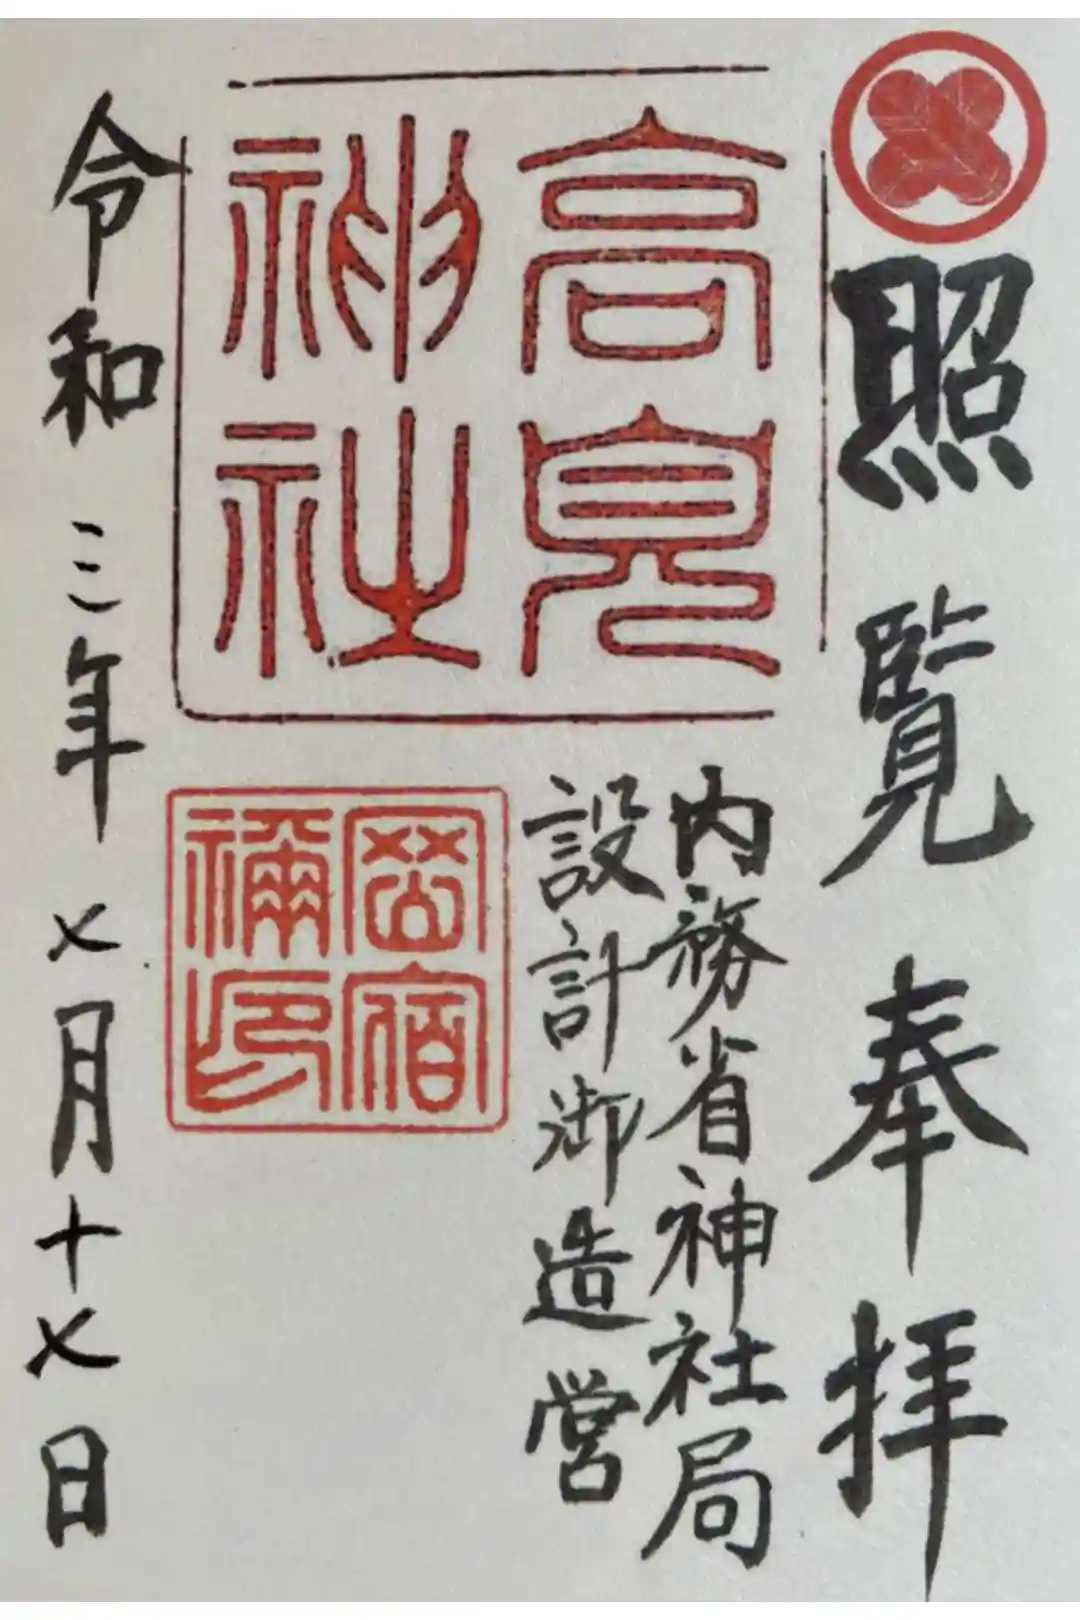 照覧奉拝
高見
神社
内務省神社局
設計御造営
岡宿
禰印
令和三年七月十七日